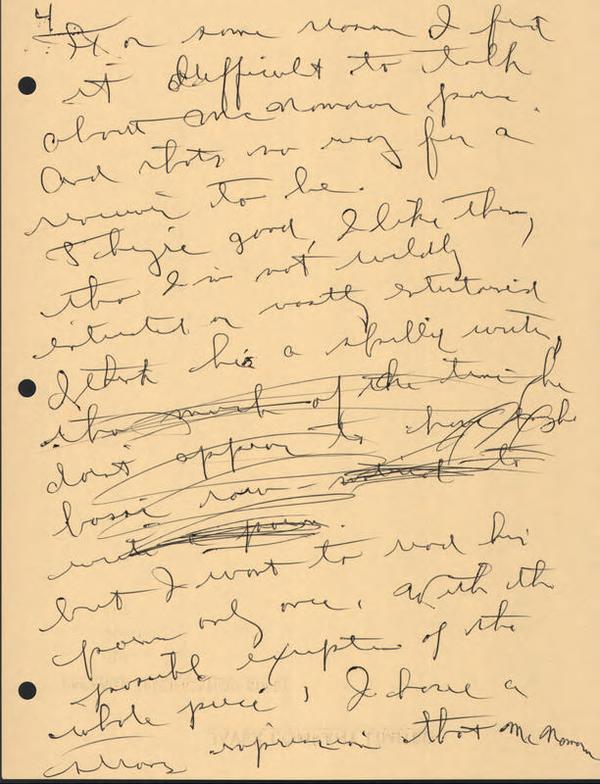 4
For some reason I find
it difficult to talk
about McNamara's poems.
And thats no way for a
reviewer to be.
They're good, I like them,
tho I'm not wildly
excited or vastly entertained
I think he's a skillful writer,
tho much of the time he
don't appear to have the
basic raw material to
write a poem.
but I want to read his
poems only once, With the
possible exception of the
whole piece, I have a
strong impression that